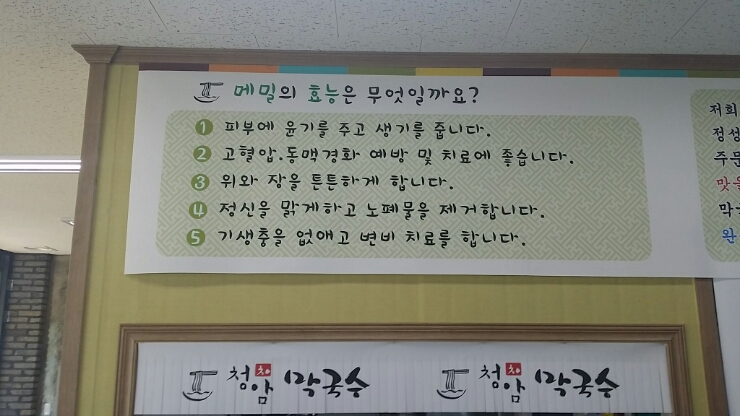 메밀의 효능은 무엇일까요?
1 피부에 윤기를 주고 생기를 줍니다.
2 고혈압.동맥경화 예방 및 치료에 좋습니다.
3 위와 장을 튼튼하게 합니다.
4 정신을 맑게하고 노폐물을 제거합니다.
5 기생충을 없애고 변비 치료를 합니다.
저희
정성
주문
맛을
막
완
청암 막국수
청암 막국수